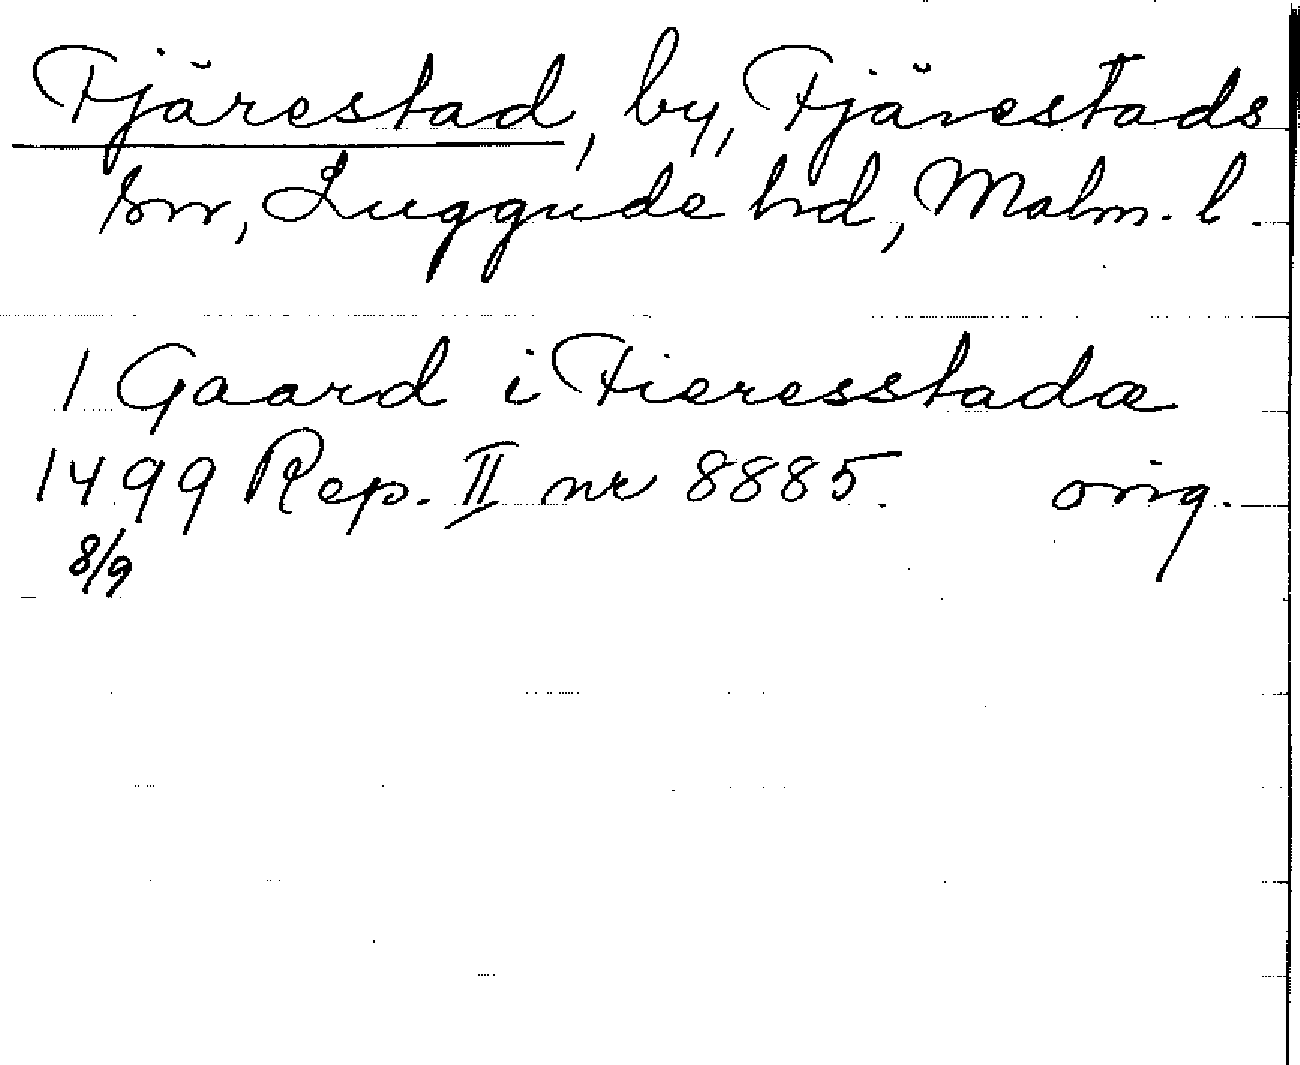 Fjärestad, by, Fjärestads
sn, Luggude hd, Malm. l.
1 Gaard i Fieresstadæ
1499 Rep. II nr 8885. orig.
8/9